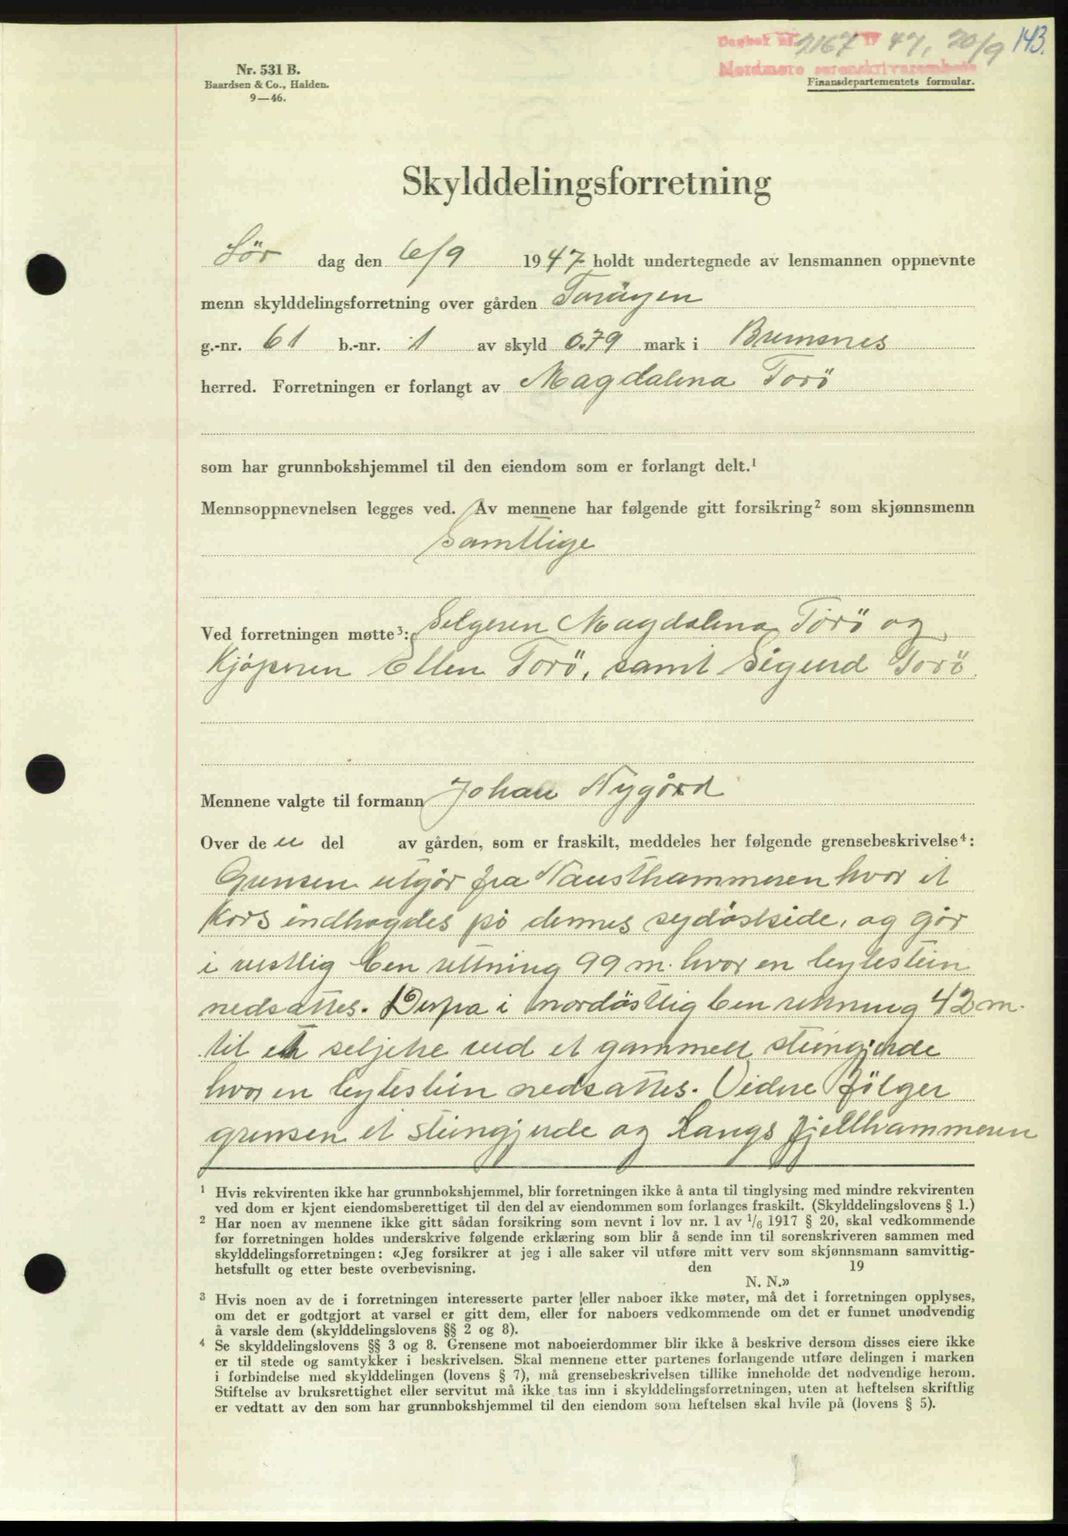 Dagbok nr. 2167 19 47, 20/9 143.
Nordmøre sorenskriverembete
Nr. 531 B.
Baardsen & Co., Halden.
9—46.
Finansdepartementets formular.
Skylddelingsforretning
Lör dag den 6/9 1947 holdt undertegnede av lensmannen oppnevnte
menn skylddelingsforretning over gården Toröyen
g.-nr. 61 b.-nr. 1 av skyld 0.79 mark i Bremsnes
herred. Forretningen er forlangt av Magdalena Torö
som har grunnbokshjemmel til den eiendom som er forlangt delt.¹
Mennsoppnevnelsen legges ved. Av mennene har følgende gitt forsikring² som skjønnsmenn
Samtlige
Ved forretningen møtte³: Selgeren Magdalena Torö og
Kjöperen Ellen Torö, samt Sigurd Torö.
Mennene valgte til formann Johan Nygård
Over de n del av gården, som er fraskilt, meddeles her følgende grensebeskrivelse⁴:
Grensen utgör fra Nausthammeren hvor et
kors indhogdes på dennes sydöstside, og går
i vestlig ben retning 99 m. hvor en bytestein
nedsattes. Derfra i nordöstlig ben retning 42 m.
til et seljetre ved et gammelt steingjerde
hvor en bytestein nedsattes. Videre fölger
grensen et steingjerde og langs fjellhammeren
¹ Hvis rekvirenten ikke har grunnbokshjemmel, blir forretningen ikke å anta til tinglysing med mindre rekvirenten
ved dom er kjent eiendomsberettiget til den del av eiendommen som forlanges fraskilt. (Skylddelingslovens § 1.)
² Har noen av mennene ikke gitt sådan forsikring som nevnt i lov nr. 1 av 1/6 1917 § 20, skal vedkommende
før forretningen holdes underskrive følgende erklæring som blir å sende inn til sorenskriveren sammen med
skylddelingsforretningen: «Jeg forsikrer at jeg i alle saker vil utføre mitt verv som skjønnsmann samvittig-
hetsfullt og etter beste overbevisning. den 19
N. N.»
³ Hvis noen av de i forretningen interesserte parter eller naboer ikke møter, må det i forretningen opplyses,
om det er godtgjort at varsel er gitt dem, eller for naboers vedkommende om det er funnet unødvendig
å varsle dem (skylddelingslovens §§ 2 og 8).
⁴ Se skylddelingslovens §§ 3 og 8. Grensene mot naboeierdommer blir ikke å beskrive dersom disses eiere ikke
er til stede og samtykker i beskrivelsen. Skal mennene etter partenes forlangende utføre delingen i marken
i forbindelse med skylddelingen (lovens § 7), må grensebeskrivelsen tillike inneholde det nødvendige herom.
Stiftelse av bruksrettighet eller servitut må ikke tas inn i skylddelingsforretningen, uten at heftelsen skriftlig
er vedtatt av den som har grunnbokshjemmel til den eiendom som heftelsen skal hvile på (lovens § 5).